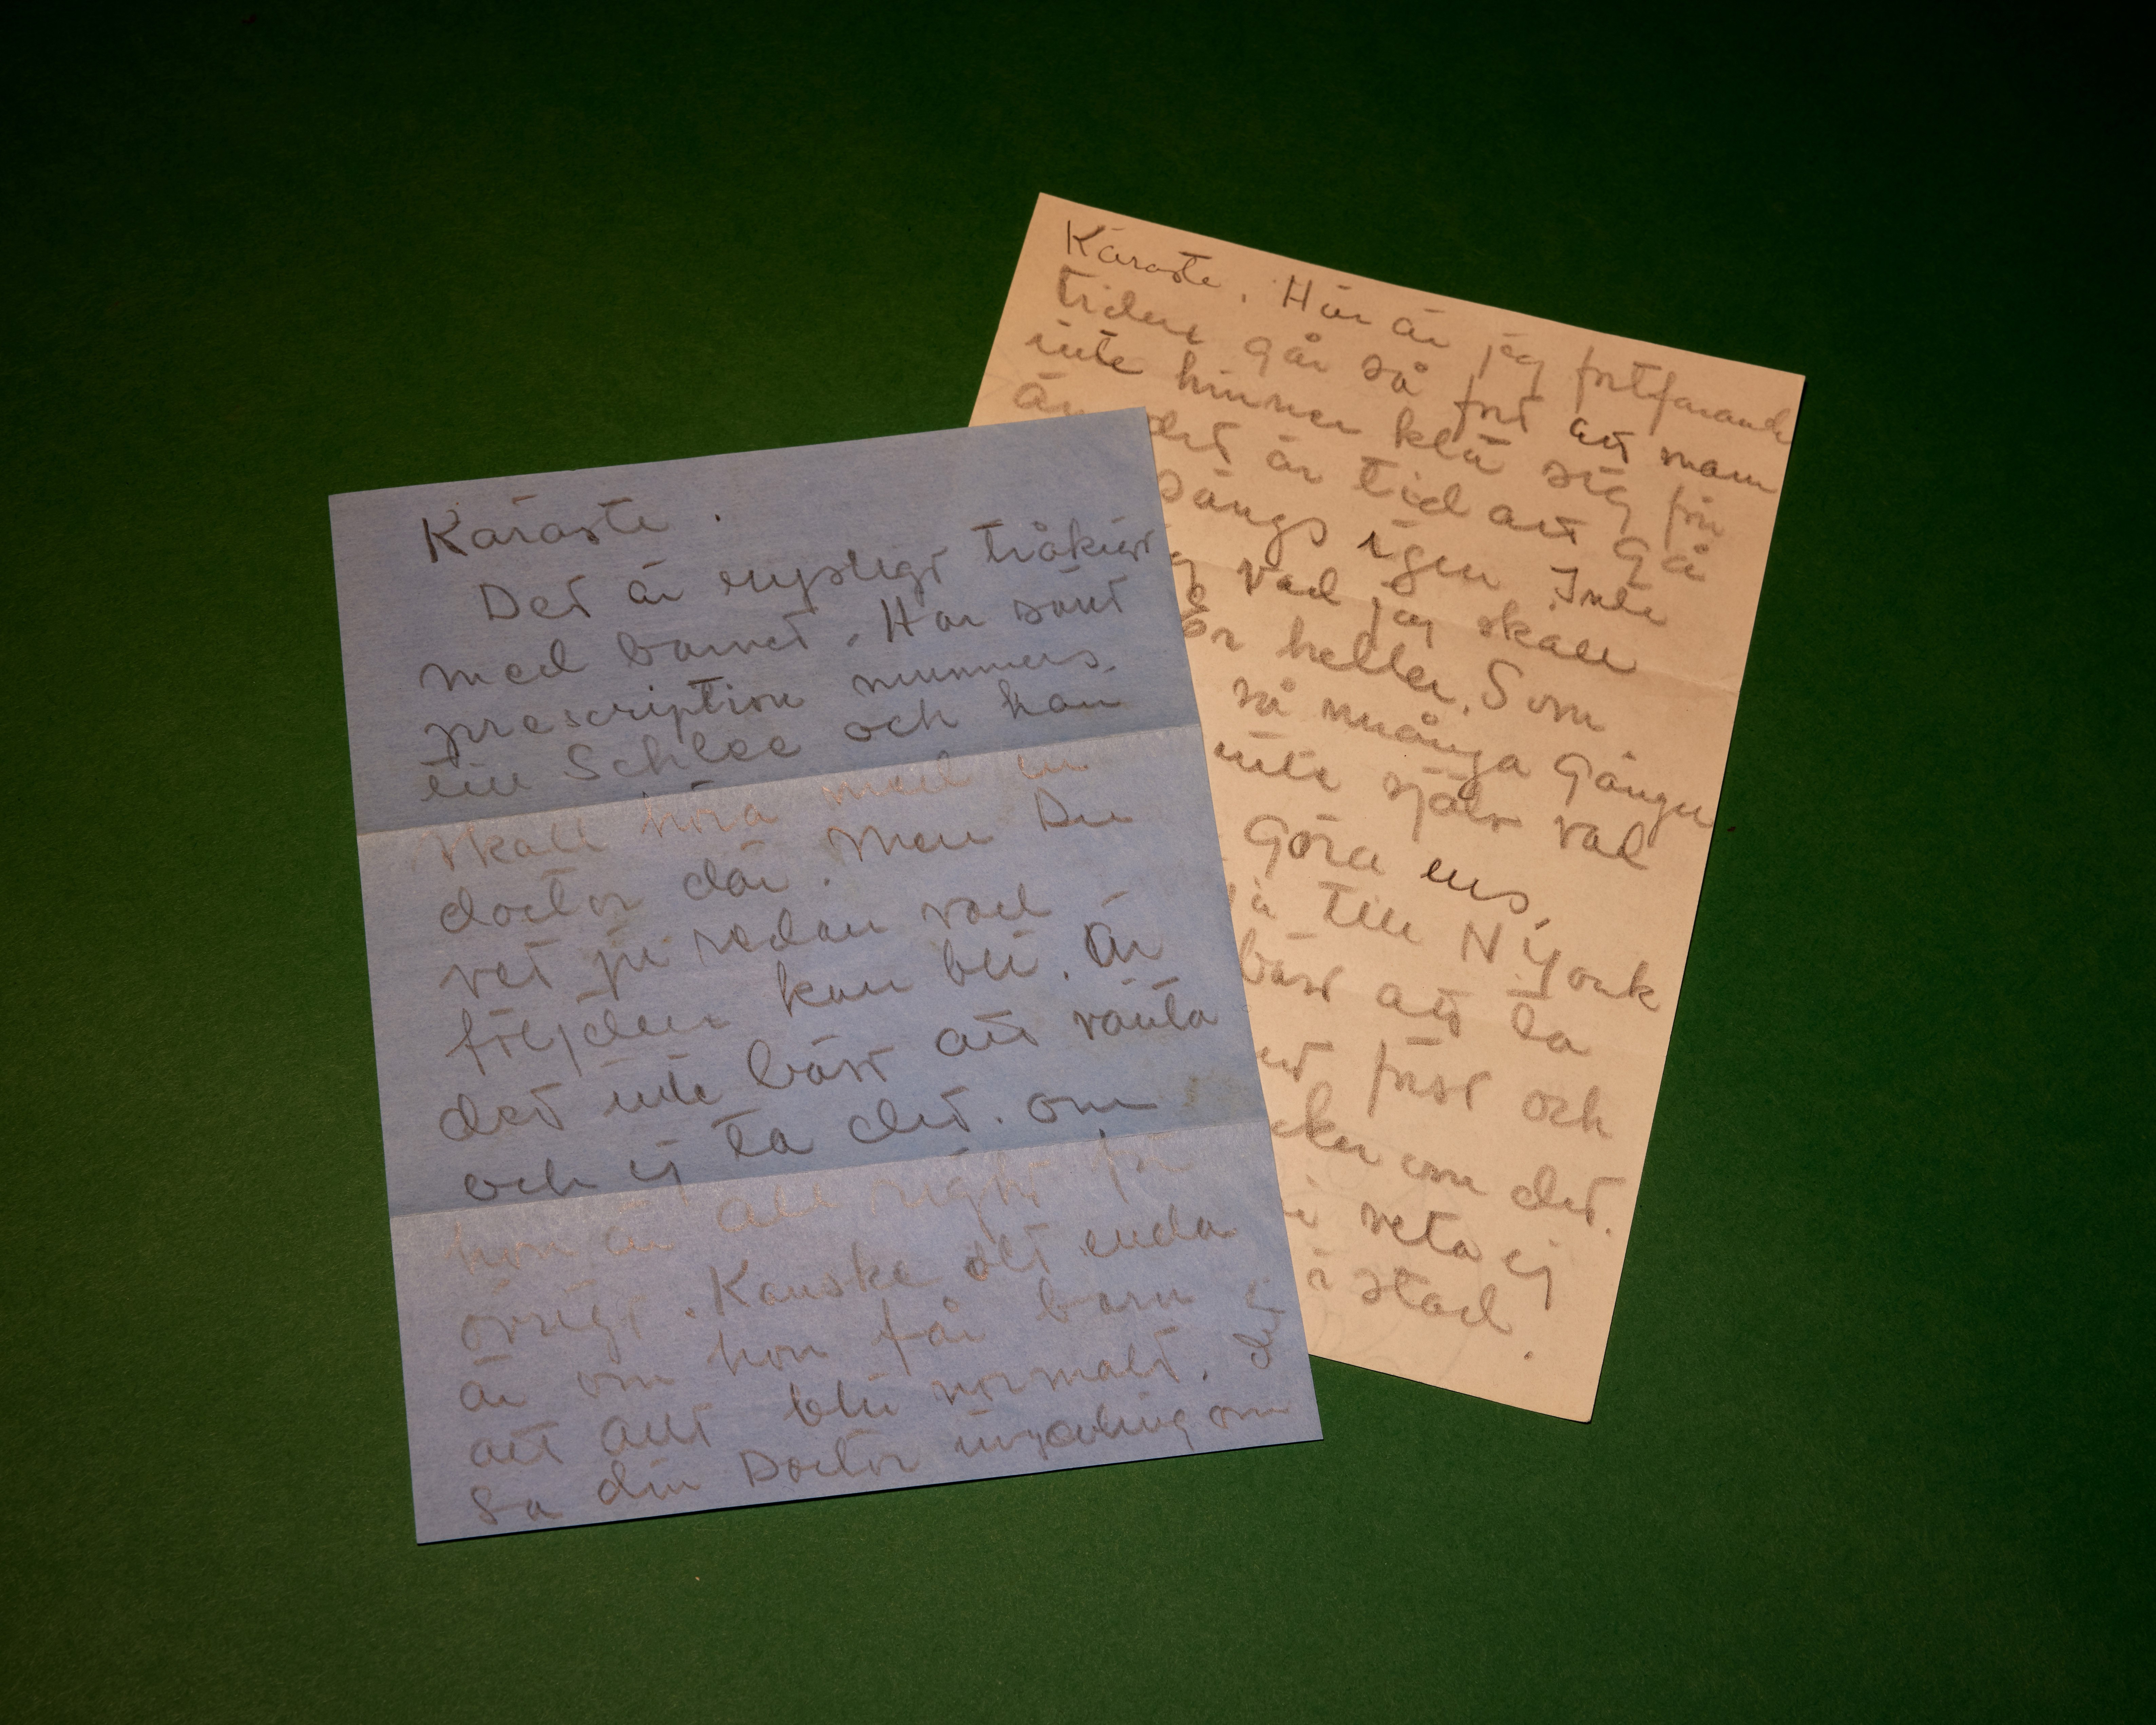 Käraste.
Det är rysligt tråkigt
med barnet. Har sänt
prescription nummers.
till Schlee och han
skall höra med en
doctor där. Men Du
vet ju redan vad
följden kan bli. Är
det inte bäst att vänta
och ej ta det. om
hon är all right för
övrigt. Kanske det enda
är om hon får barn
att allt blir normalt.
Sa din Doctor ingenting om
det
Käraste. Här är jag fortfarande
tiden går så fort att man
inte hinner klä sig för
än det är tid att gå
sängs igen Inte
vad jag skall
heller. Som
så många gånger
inte själv vad
göra ens.
till N York
bäst att ta
först och
om det.
veta ej
stad.